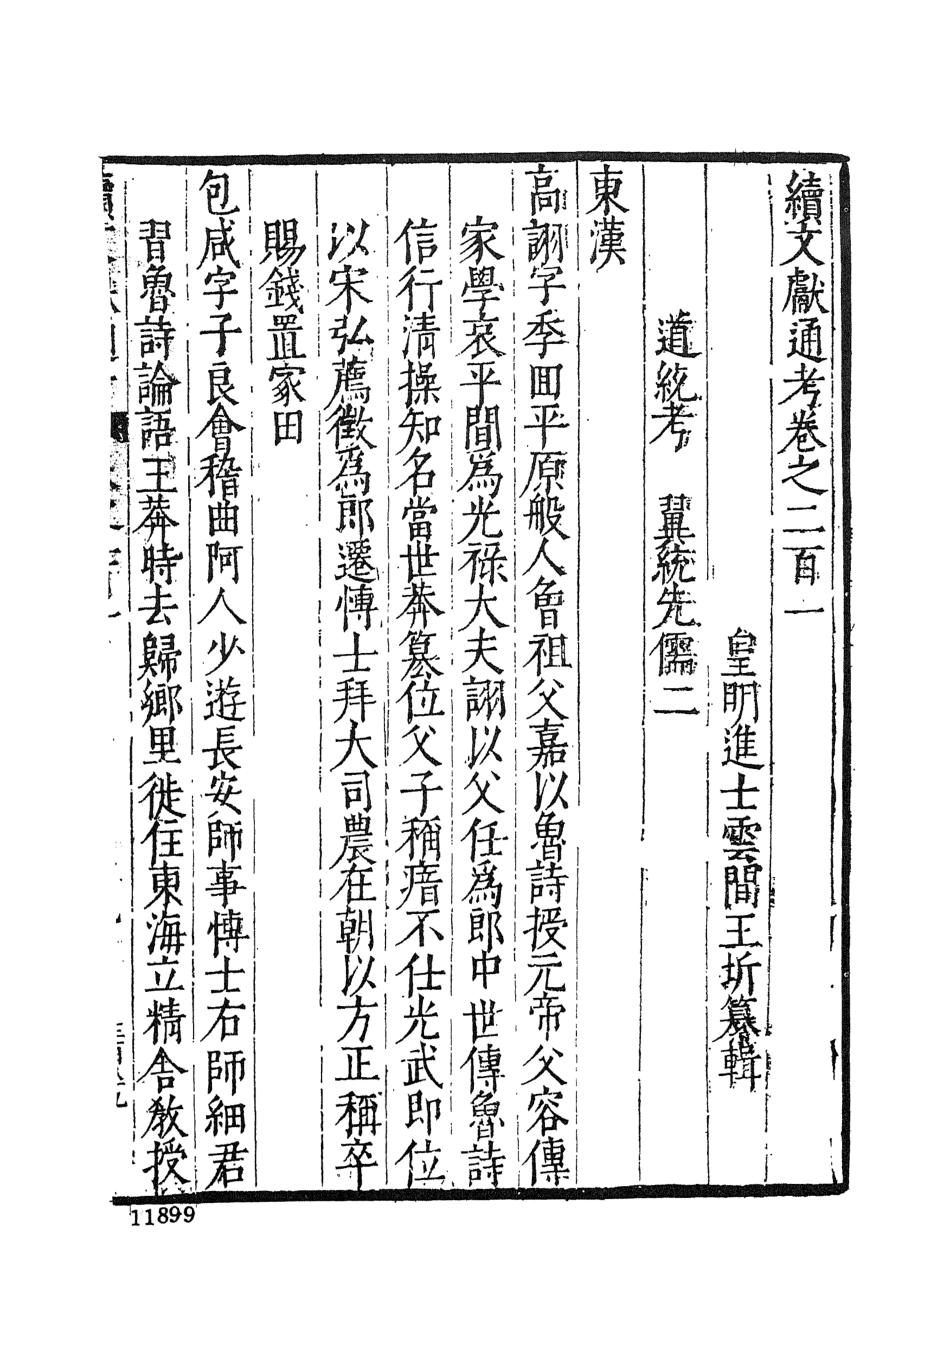 續文獻通考卷之二百一
皇明進士雲間王圻纂輯
道統考 翼統先儒二
東漢
高詡字季回平原般人曾祖父嘉以魯詩授元帝父容傳
家學哀平間為光祿大夫詡以父任為郎中世傳魯詩
信行清操知名當世莽篡位父子稱瘖不仕光武即位
以宋弘薦徵為郎遷博士拜大司農在朝以方正稱卒
賜錢置家田
包咸字子良會稽曲阿人少遊長安師事博士右師細君
習魯詩論語王莽時去歸鄉里徙住東海立精舍教授
11899